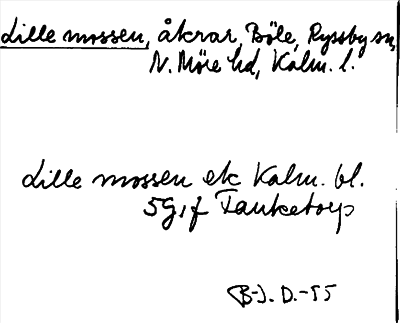 Lille mossen, åkrar, Böle, Ryssby sn,
N. Möre hd, Kalm. l.
Lille mossen ek Kalm. bl.
5G, f Tanketorp
B-J. D.-55